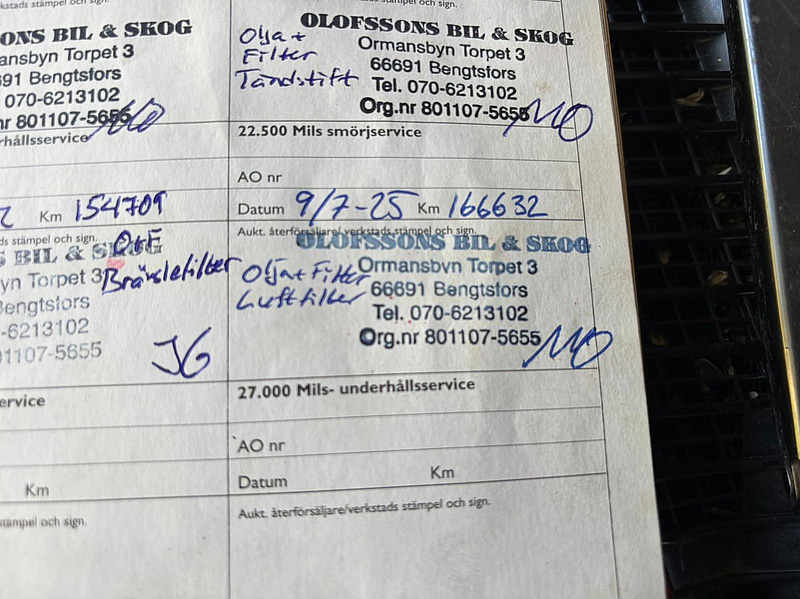 rkstads stämpel och sign.
ONS BIL & SKOG
ansbyn Torpet 3
691 Bengtsfors
070-6213102
nr 801107-5656
rhållsservice
Km 154709
ds stämpel och sign.
O+F
S BIL & SKOG
yn Torpet 3
Bränslefilter
Bengtsfors
-6213102
01107-5655
JG
ervice
Km
stämpel och sign.
och sign.
OLOFSSONS BIL & SKOG
Olja+
Filter
Tändstift
Ormansbyn Torpet 3
66691 Bengtsfors
Tel. 070-6213102
Org.nr 801107-5655
MO
22.500 Mils smörjservice
AO nr
Datum 9/7-25 Km 166632
Aukt. återförsäljare/verkstads stämpel och sign.
OLOFSSONS BIL & SKOG
Olja+Filter
Luftfilter
Ormansbyn Torpet 3
66691 Bengtsfors
Tel. 070-6213102
Org.nr 801107-5655
MO
27.000 Mils- underhållsservice
AO nr
Datum Km
Aukt. återförsäljare/verkstads stämpel och sign.